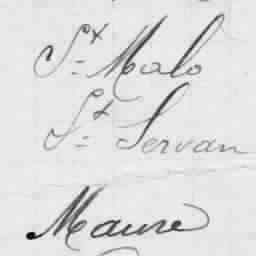 St Malo
St Servan
Maure